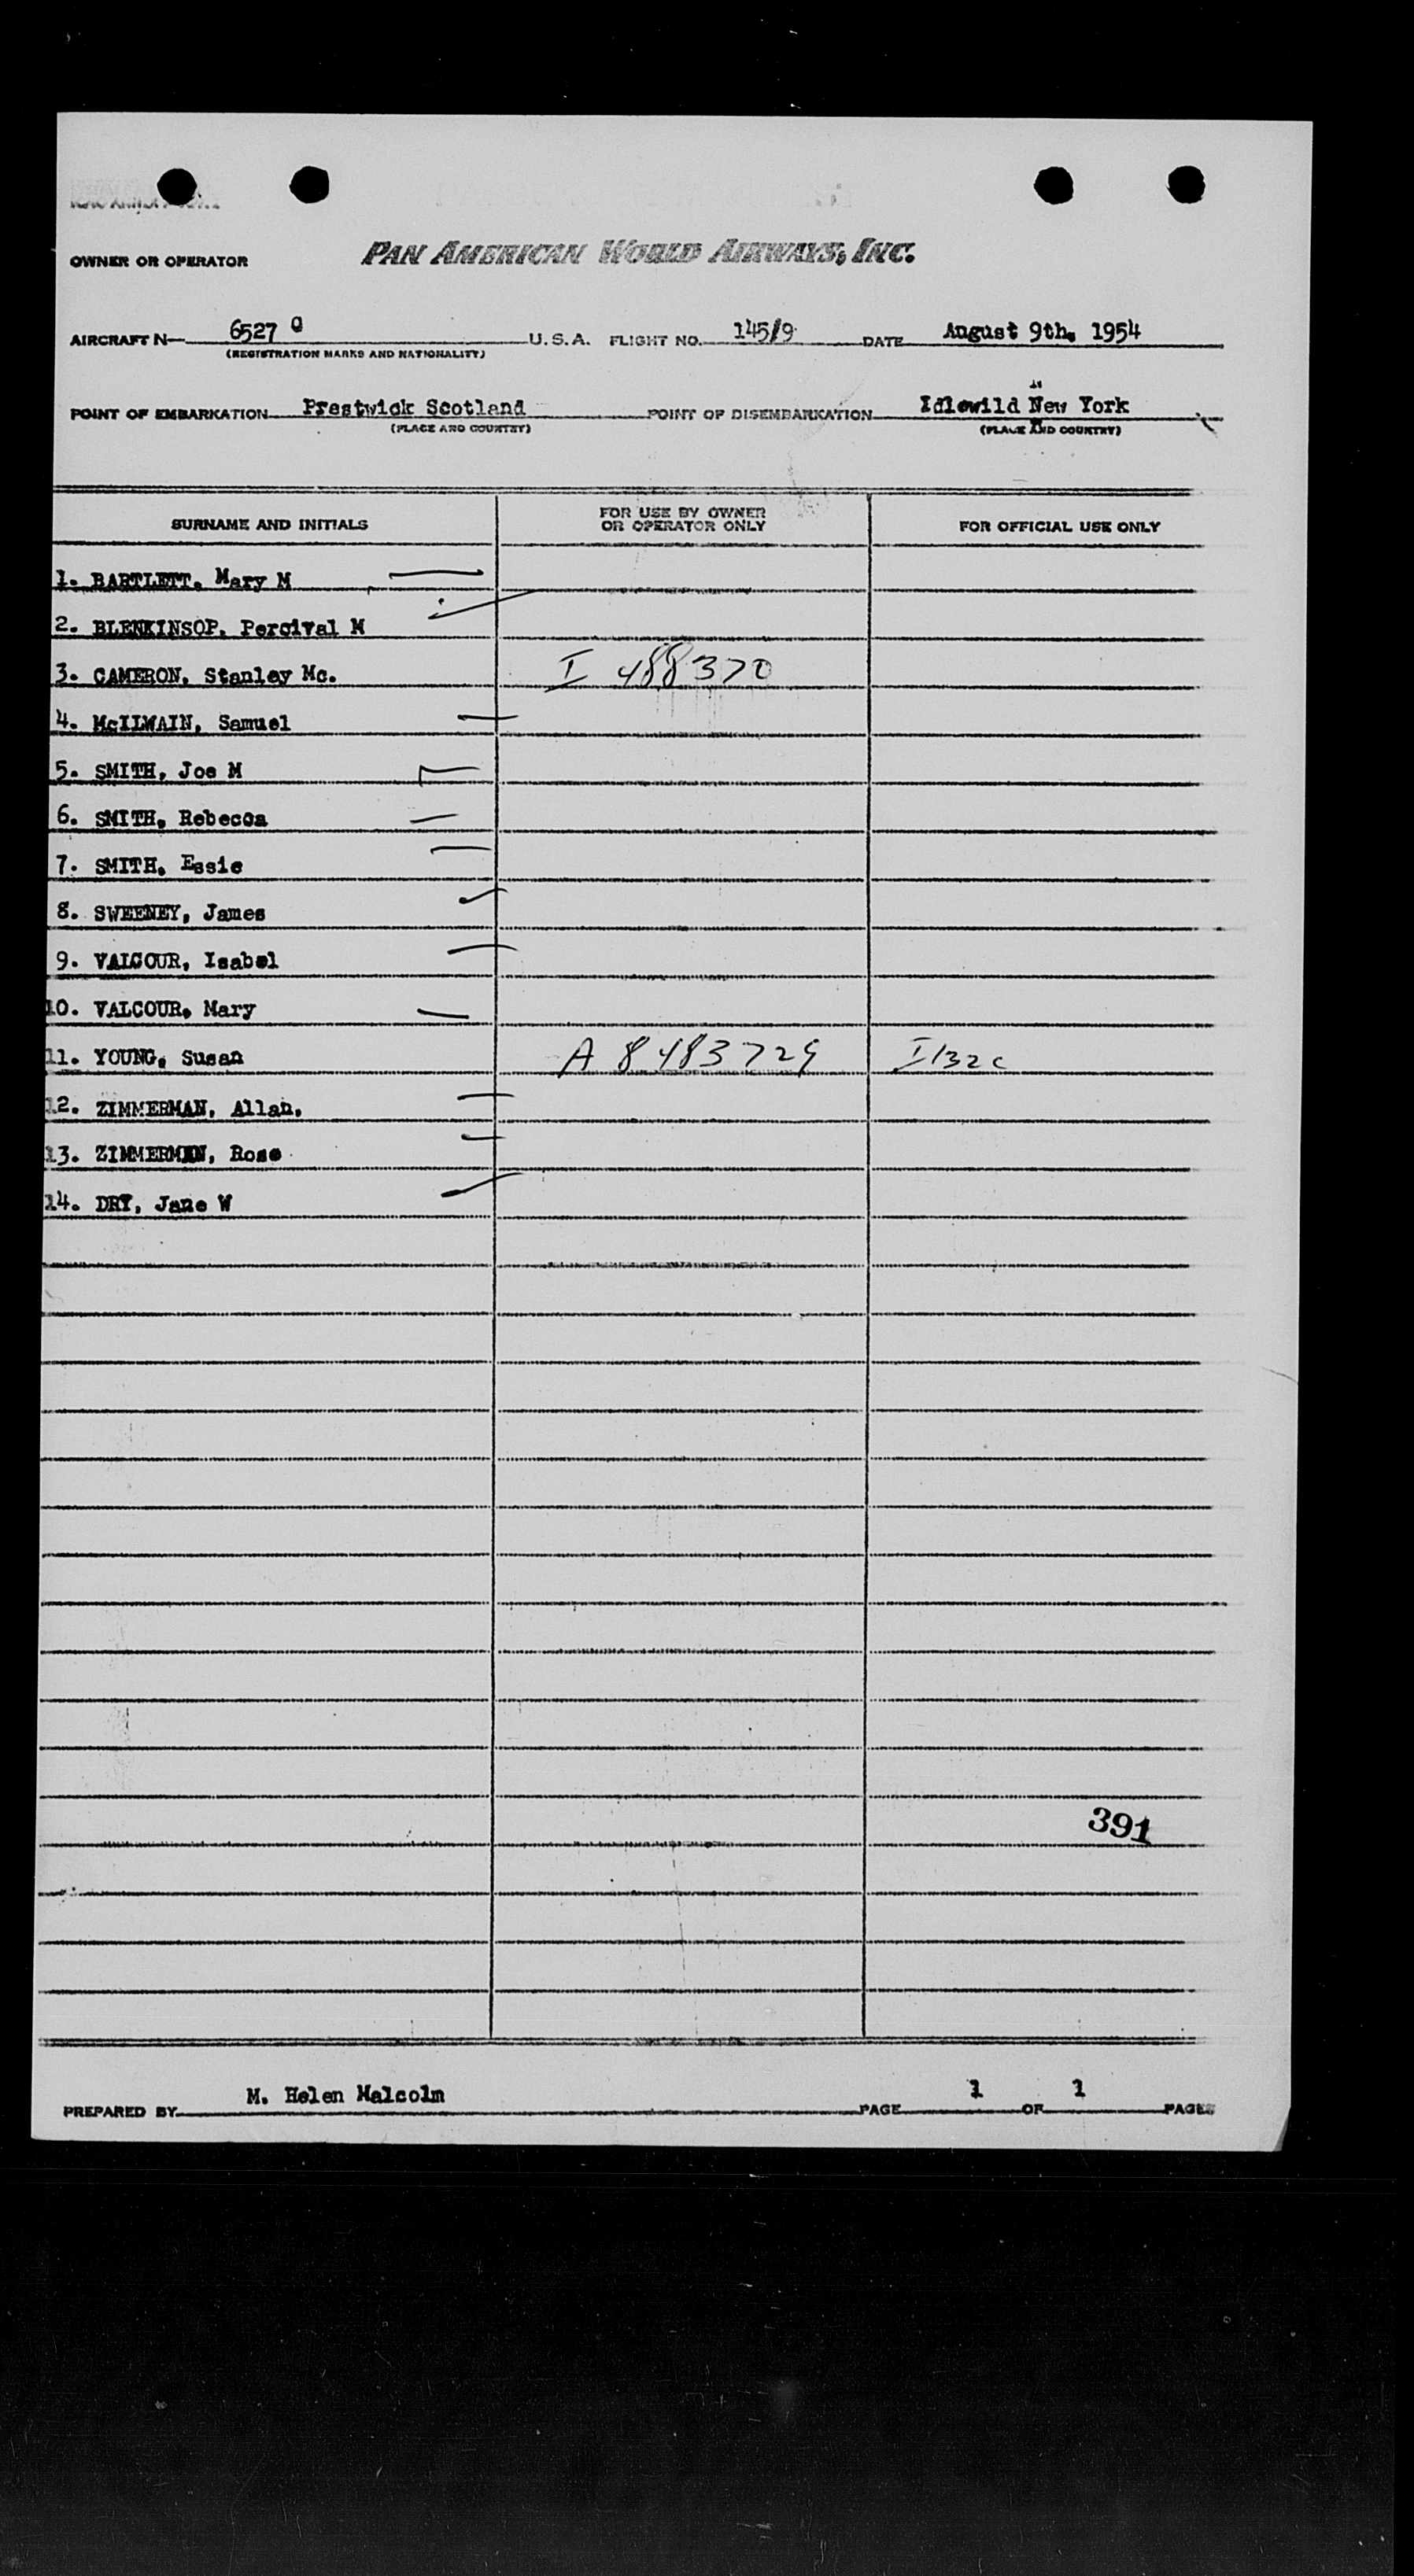 OWNER OR OPERATOR PAN AMERICAN WORLD AIRWAYS, INC.
AIRCRAFT N— 6527 U.S.A. FLIGHT NO. 145/9 DATE August 9th, 1954
(REGISTRATION MARKS AND NATIONALITY)
POINT OF EMBARKATION Prestwick Scotland POINT OF DISEMBARKATION Idlewild New York
(PLACE AND COUNTRY) (PLACE AND COUNTRY)
SURNAME AND INITIALS FOR USE BY OWNER OR OPERATOR ONLY FOR OFFICIAL USE ONLY
1. BARTLETT, Mary M
2. BLENKINSOP, Percival M
3. CAMERON, Stanley Mc. I 488370
4. McILWAIN, Samuel
5. SMITH, Joe M
6. SMITH, Rebecca
7. SMITH, Essie
8. SWEENEY, James
9. VALCOUR, Isabel
10. VALCOUR, Mary
11. YOUNG, Susan A 8483729 I132c
12. ZIMMERMAN, Allan,
13. ZIMMERMAN, Rose
14. DRY, Jane W
391
PREPARED BY M. Helen Malcolm PAGE 1 OF 1 PAGES